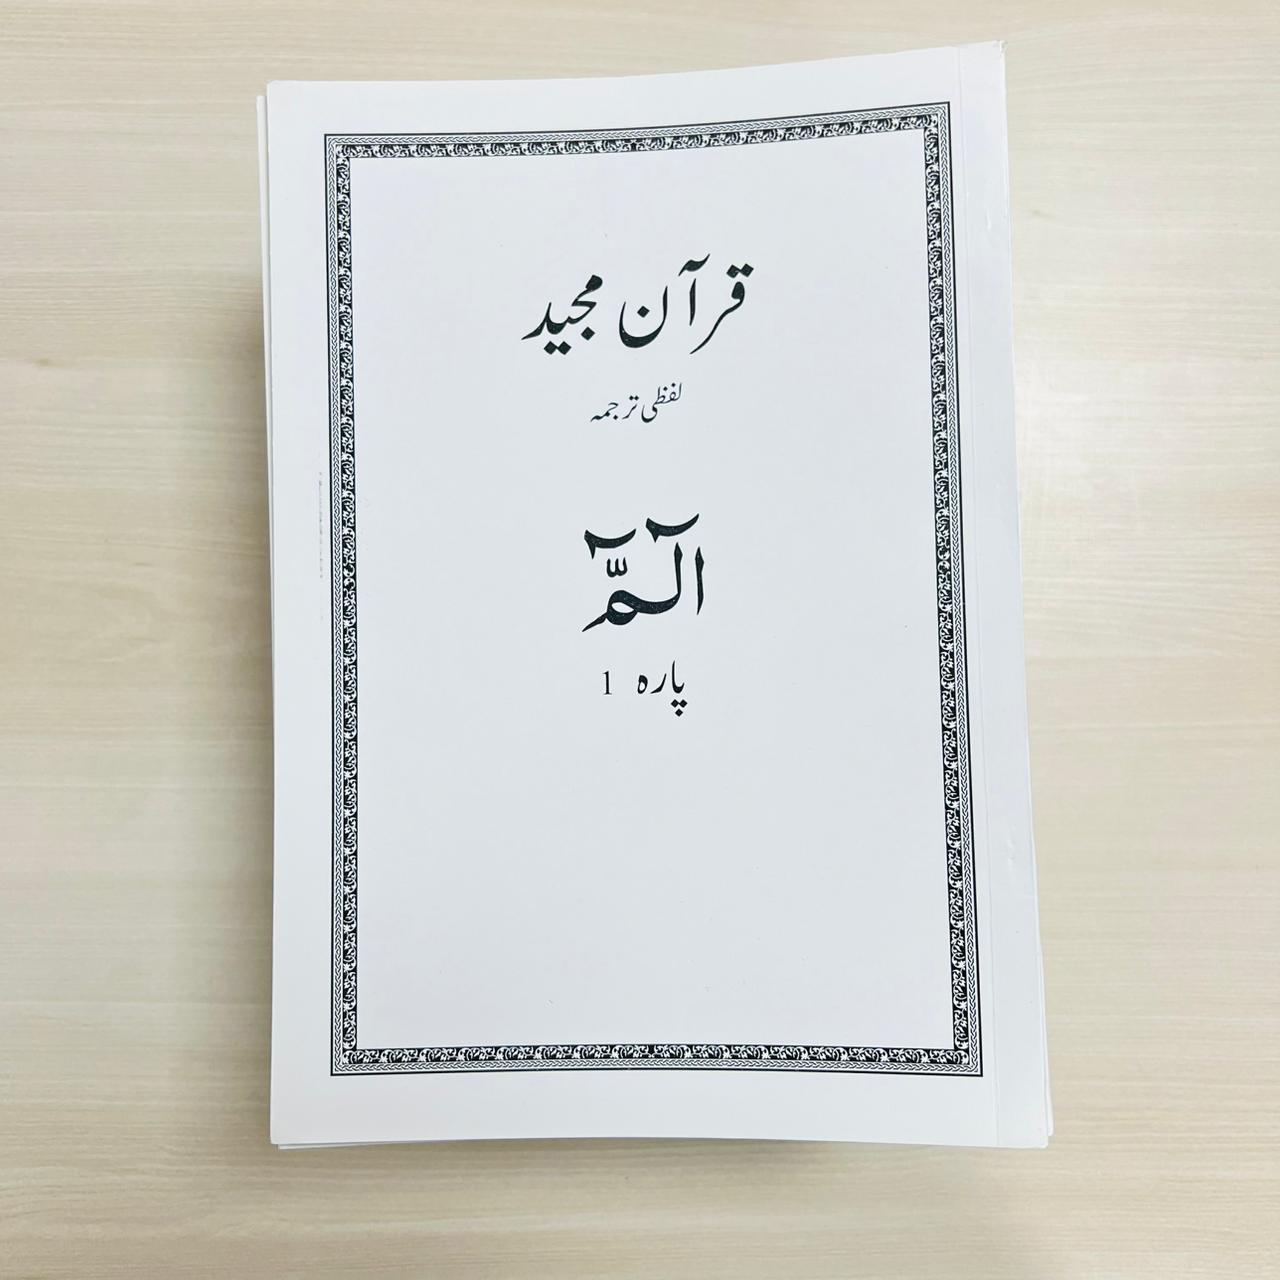 قرآن مجید
لفظی ترجمہ
الٓمّٓ
پارہ 1